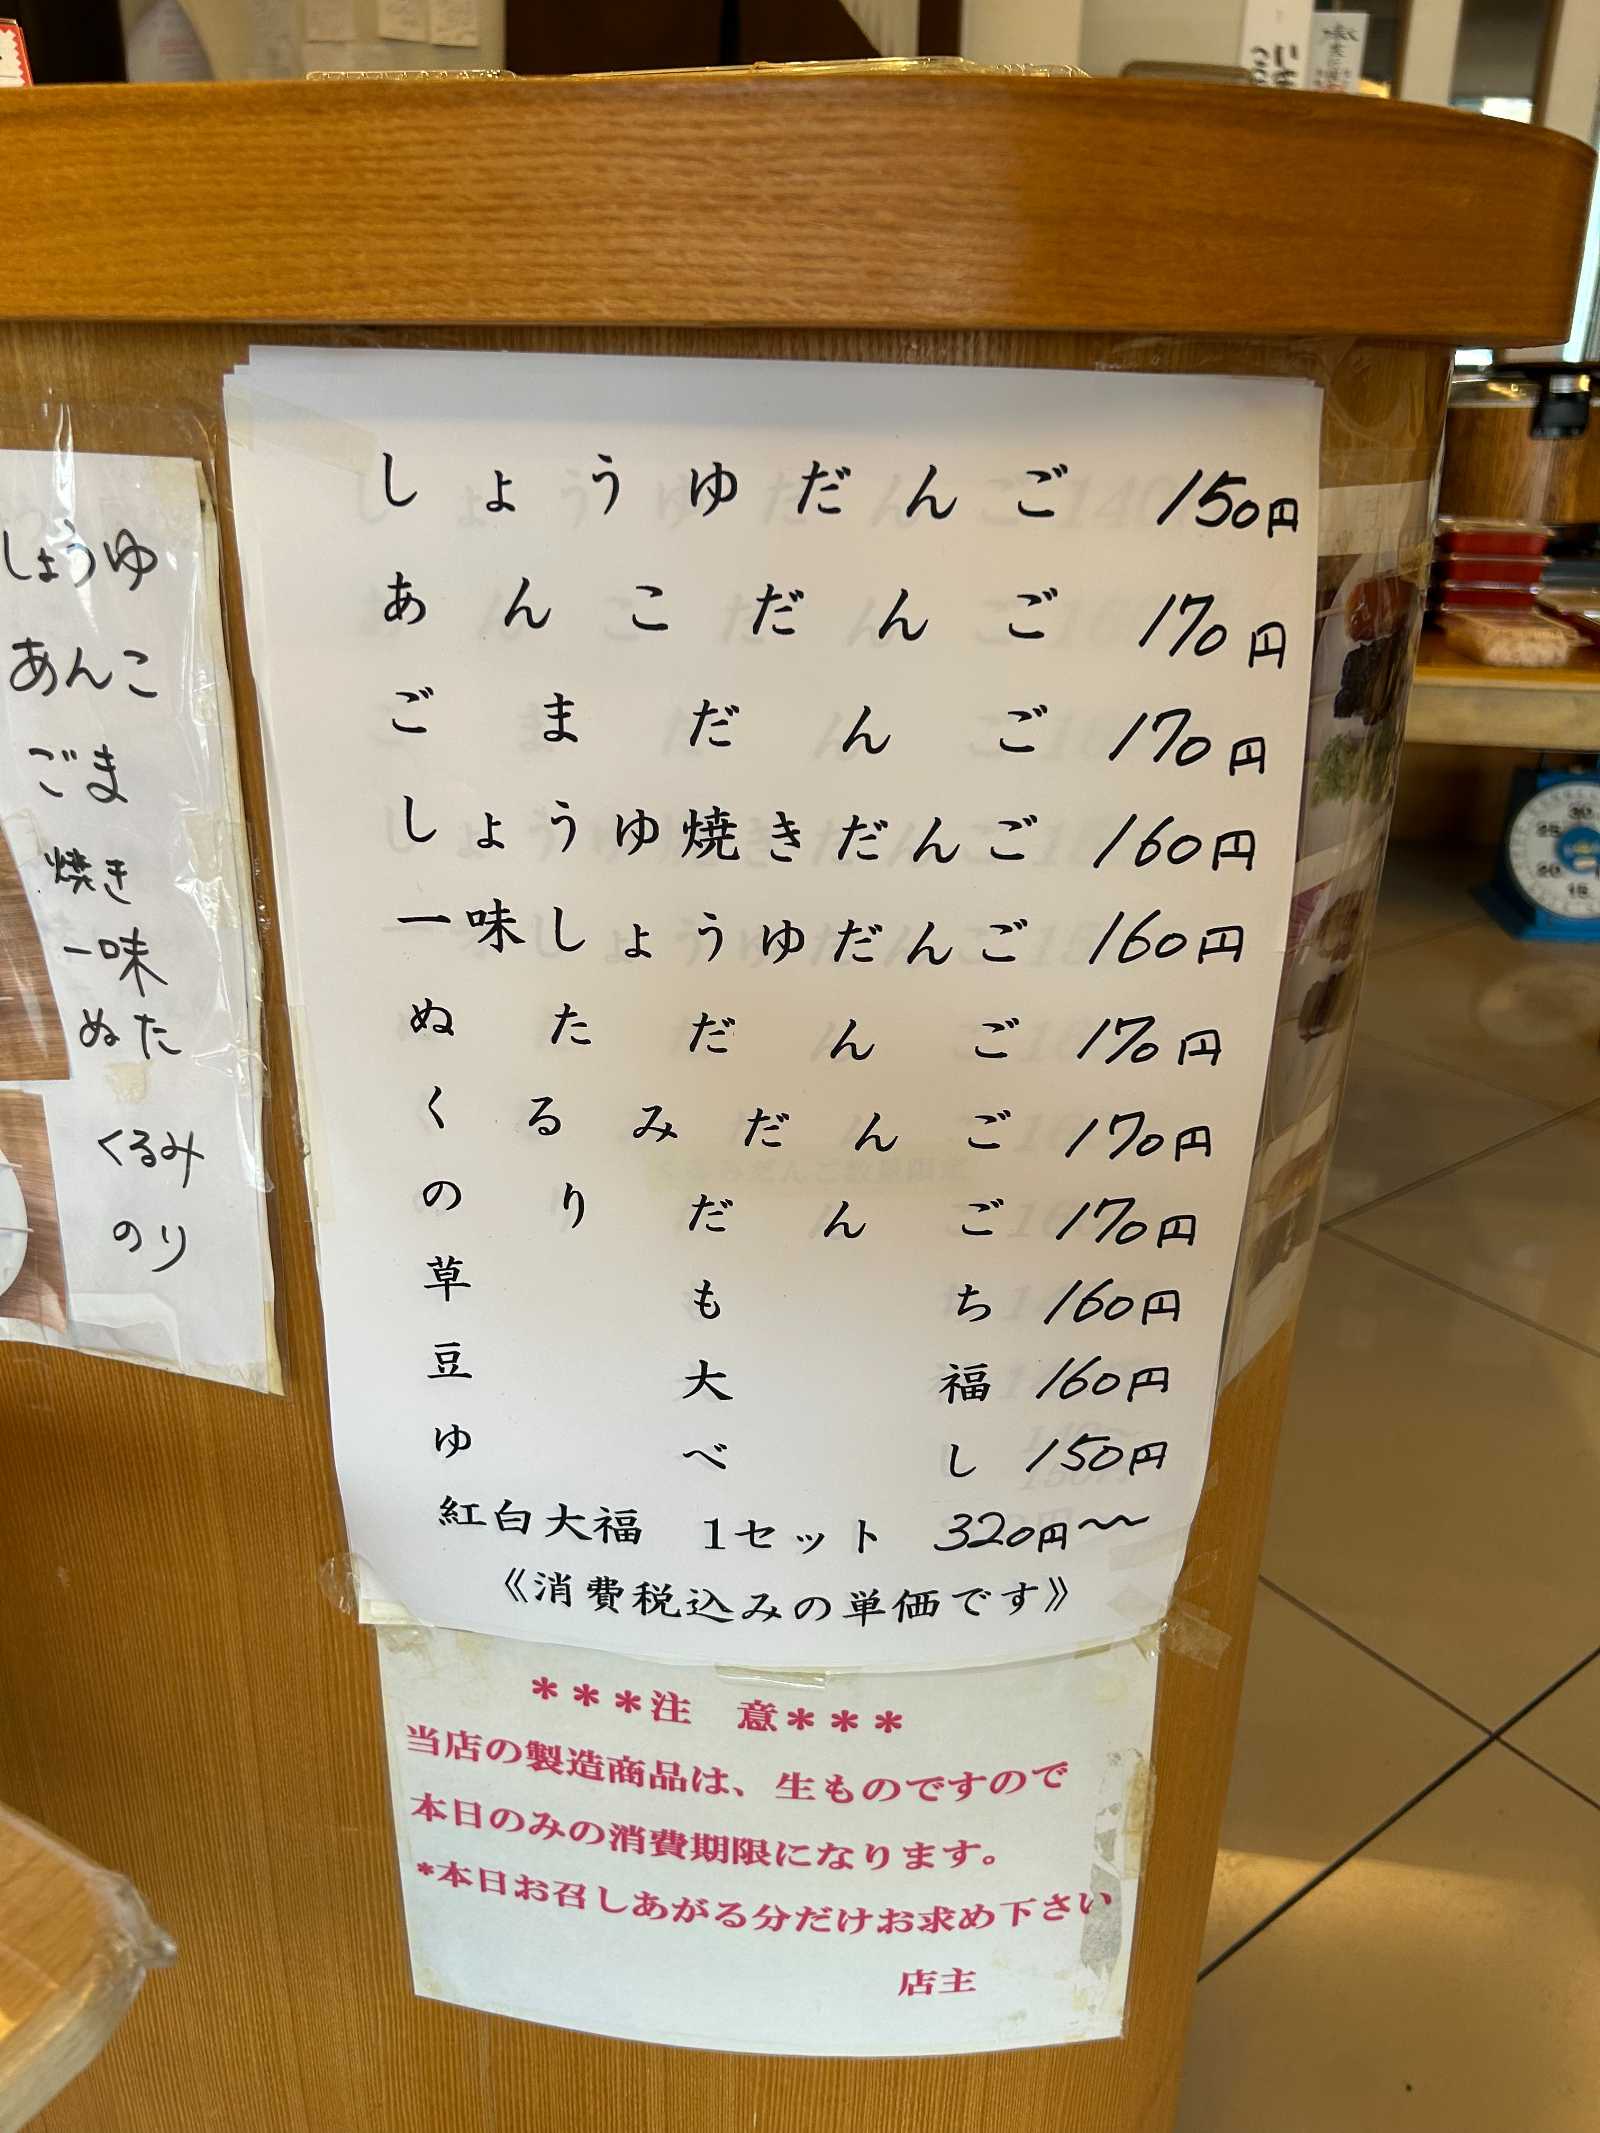 しょうゆ
あんこ
ごま
焼き
一味
ぬた
くるみ
のり
しょうゆだんご 150円
あんこだんご 170円
ごまだんご 170円
しょうゆ焼きだんご 160円
一味しょうゆだんご 160円
ぬただんご 170円
くるみだんご 170円
のりだんご 170円
草もち 160円
豆大福 160円
ゆべし 150円
紅白大福 1セット 320円~
《消費税込みの単価です》
***注 意***
当店の製造商品は、生ものですので
本日のみの消費期限になります。
*本日お召しあがる分だけお求め下さい
店主